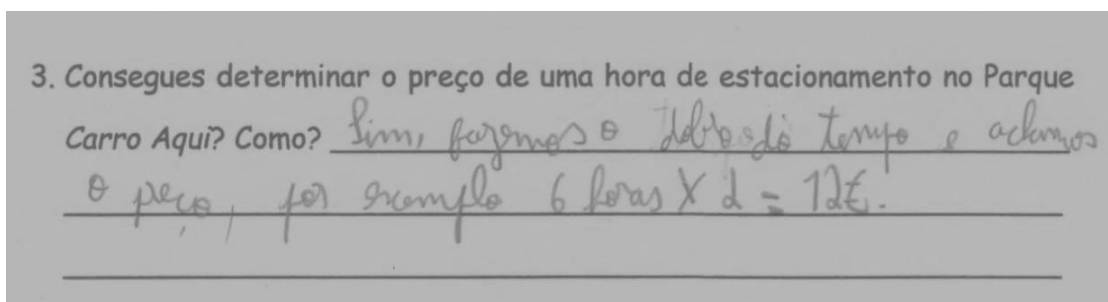 3. Consegues determinar o preço de uma hora de estacionamento no Parque
Carro Aqui? Como? Sim, fazemos o dobro do tempo e achamos
o peço, por exemplo 6 horas X 2 = 12€.